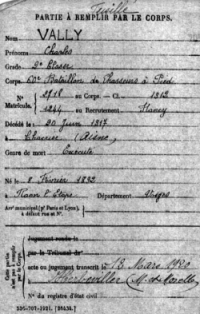 Feuille
PARTIE À REMPLIR PAR LE CORPS.
Nom VALLY
Prénoms Charles
Grade 2e Classe
Corps Bataillon de Chasseurs à Pied
N° 2918 au Corps. — Cl. 1912
Matricule. 1244 au Recrutement Nancy
Décédé le 20 Juin 1917
à Chaunes (Aisne)
Genre de mort Exécuté
Né le 8 Février 1892
à Raon l'Etape Département Vosges
Arrt municipal (pr Paris et Lyon),
à défaut rue et N°.
Cette partie
n'est pas à remplir
par le Corps.
Jugement rendu le
par le Tribunal de
acte ou jugement transcrit le 13 Mars 1920
à (M. et Moselle)
N° du registre d'état civil
536-707-1921. [26434.]